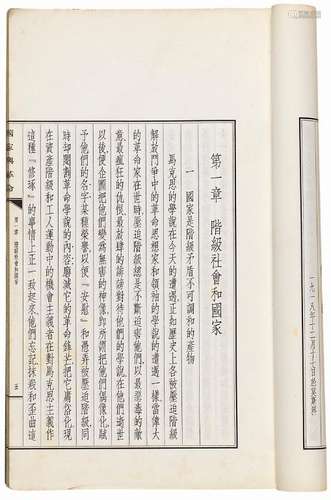 一九一八年十二月十七日於莫斯科
第一章　階級社會和國家
一　國家是階級矛盾不可調和的產物
馬克思的學說在今天的遭遇正如歷史上各被壓迫階級
解放鬥爭中的革命思想家和領袖的學說的遭遇一樣當偉大
的革命家在世時壓迫階級總是不斷迫害他們以最惡毒的敵
意最瘋狂的仇恨最放肆的誹謗對待他們的學說在他們逝世
以後便企圖把他們變為無害的神像即所謂把他們偶像化賦
予他們的名字某種榮譽以便『安慰』和愚弄被壓迫階級同
時却閹割革命學說的內容磨滅它的革命鋒芒把它庸俗化現
在資產階級和工人運動中的機會主義者在對馬克思主義作
這種『修琢』的事情上正一致起來他們忘記抹殺和歪曲這
國家與革命
第一章　階級社會和國家
五